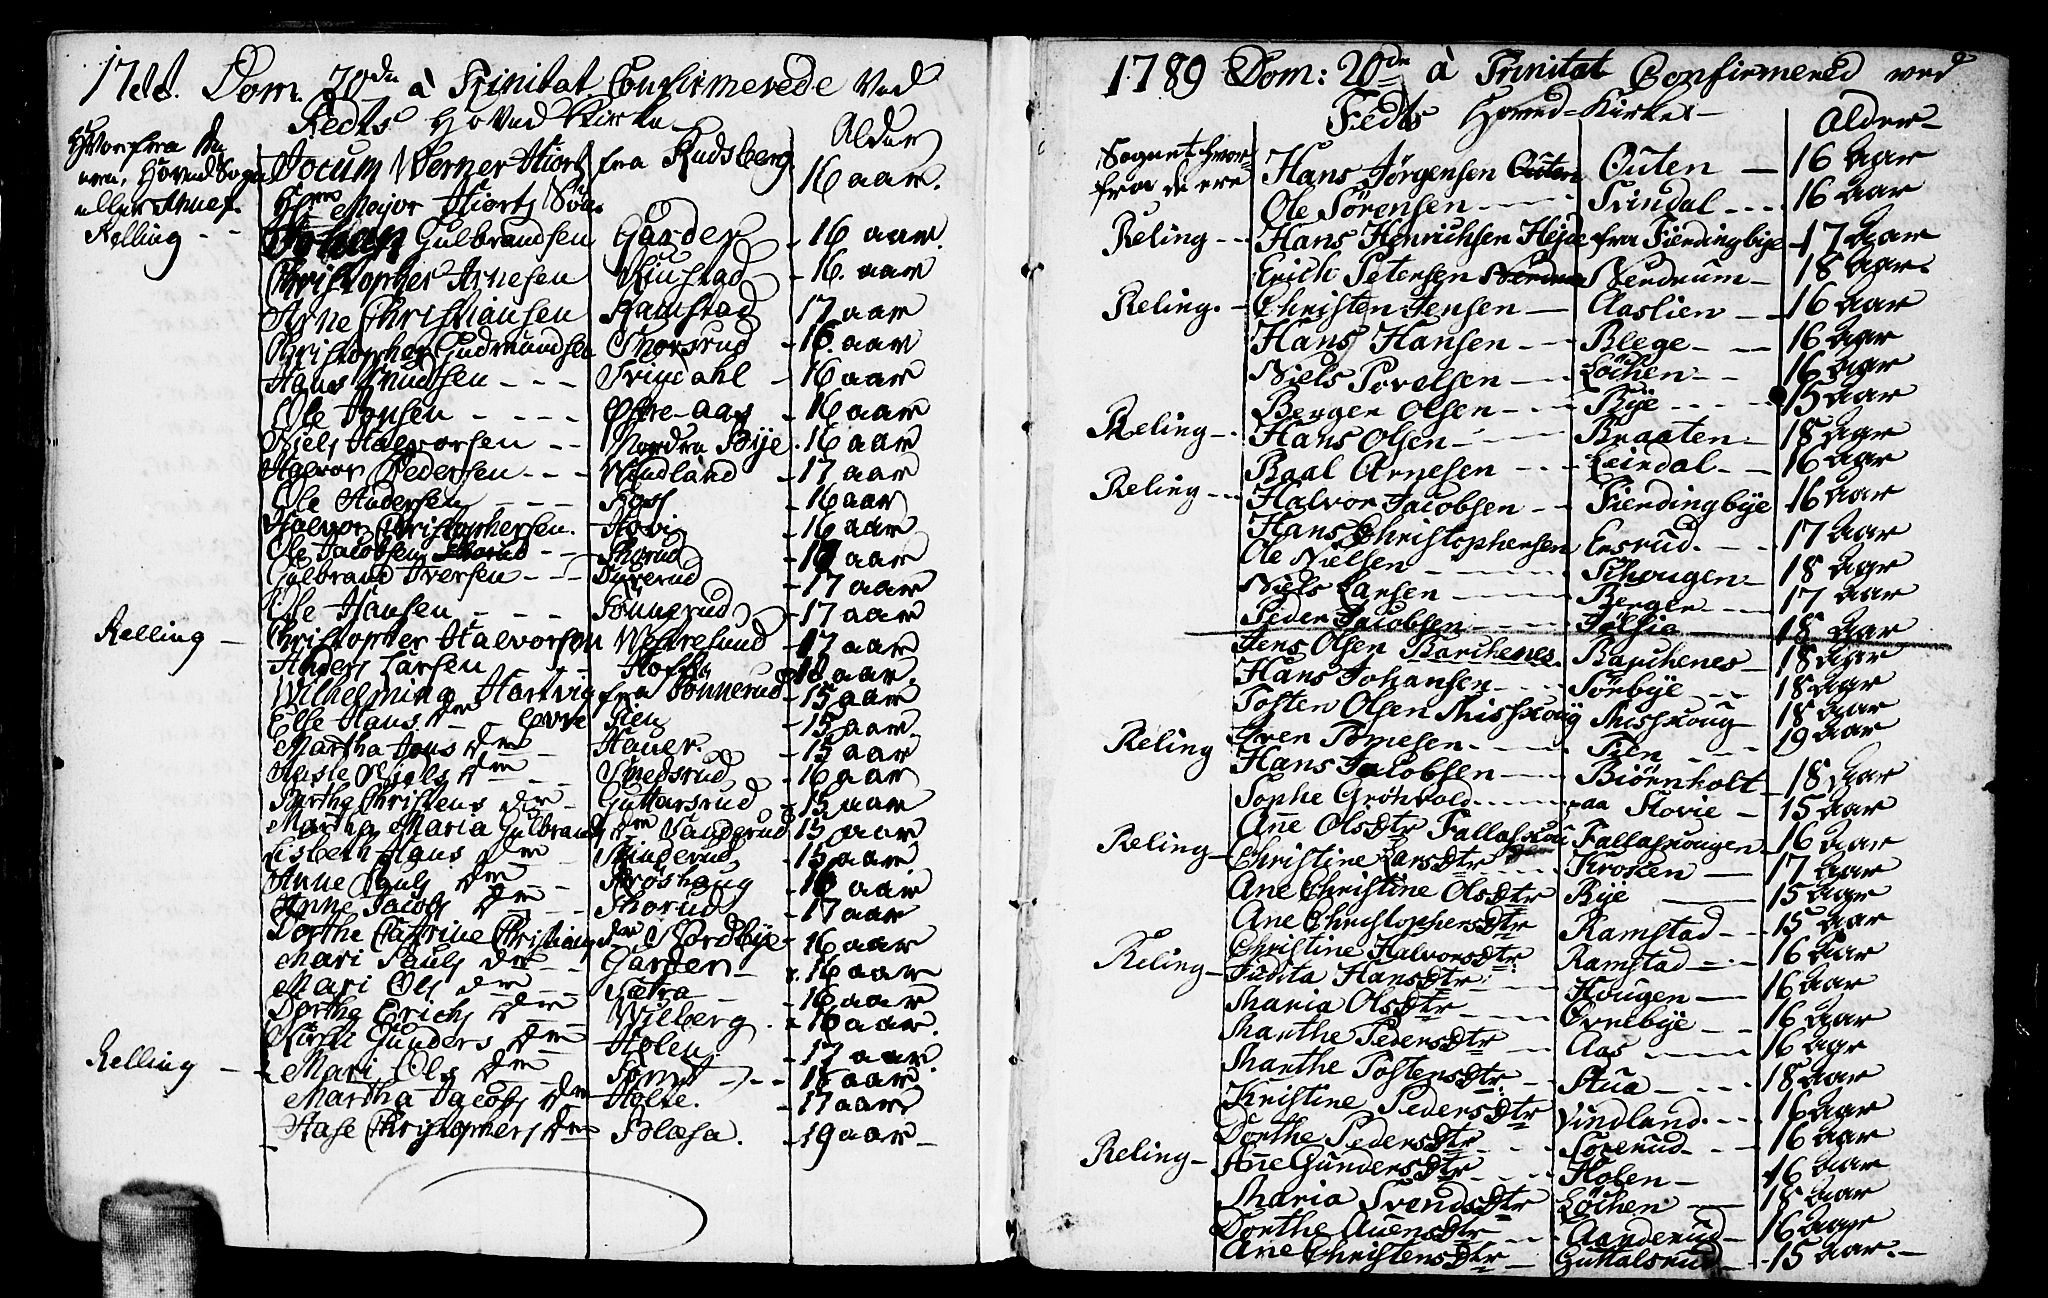 1788. Dom. 20de à Trinitat Confirmerede Ved
Fedts Hoved Kirke
Hvorfra de
ere, Hoved Sogn
eller Annex.
Alder
Jocum Werner Hiort fra Rudsberg. 16 aar.
Hrr Major Hiorts Søn.
Relling - - Johan Gulbrandsen Garder - 16 aar.
Christopher Arnesen Rinstad - 16. aar
Arne Christiansen Ramstad 17 aar
Christopher Gudmundsen Morsrud - 16. aar
Hans Knudsen - - - Svindahl - 16 aar
Ole Jensen - - - - Østre-Aas - 16 aar
Niels Halvorsen - - Nordre Bije. 16 aar
Halvor Pedersen - - - Windland - 17 aar
Ole Andersen - - - Aas - 16 aar
Halvor Christophersen. Hovi - 16 aar
Ole Jacobsen - - Skorud - 16 aar
Gulbrand Iversen - - - Dyverud - 17 aar
Ole Hansen - - - Tønnerud - 17 aar
Relling - Christopher Halvorsen Westresund - 17 aar
Anders Larsen - - Hoff - 18 aar.
Wilhelmina Hartvig fra Tønnerud - 15 aar
Else Hans der Tien - 15 aar.
Martha Jens Der - Hauer. - 15 aar
Aaste Niels Der - - Smedsrud - 16 aar
Berthe Christens Der - Guttersrud - 15 aar
Martha Maria Gulbrands Der Sandgrud 15 aar
Lisbeth Hans Der Strinderud - 15 aar
Anne Pauls Der - Brøshaug - 16 aar.
Anne Jacobs Der - - Skorud - 17 aar
Dorthe Cathrine Christians Der Nordbye - 16 aar
Mari Pauls Der - - Garder - - 16 aar
Mari Ols Der - - Sætra - - 16 aar
Dorthe Erichs Der - Wieberg. - 16 aar.
Kirsti Gunders Der Holen - 17 aar.
Relling - - Mari Ols Der - Tomt - - - 15 aar
Martha Jacobs Der Holte. - 17 aar
Aase Christophers Der Blæsa. - 19 aar -
1789 Dom: 20de à Trinitat Confirmered ved
Fedts Hoved-Kirke -
Sognet hvor-
fra de ere
Alder -
Hans Jørgensen Outen Outen - 16 Aar
Ole Sørensen - - - Svindal - - - 16 Aar
Reling - - - Hans Henrichsen Heide fra Fierdingbye - 17 Aar
Erich Petersen Nerdrum Nerdrum - 18 Aar.
Reling. - Christen Jensen - Aaslien - - 16 Aar
Hans Hansen - - Blege - - - 16 Aar
Niels Povelsen - - - Løchen - - 16 Aar
Berger Olsen - - - Bije - - - - 15 Aar
Reling - . Hans Olsen - - - Braaten - 18 Aar
Paal Arnesen - - - Leindal - - 16 Aar
Reling - - - Halvor Jacobsen - - Fierdingbye 16 Aar
Hans Christophersen Ensrud. - - - 17 Aar
Ole Nielsen - - - Schougen - 18 Aar
Niels Larsen - - - Berger - - - 17 Aar
Peder Jacobsen - - - Tølsia - 18 Aar
Jens Olsen Barchenes. Barchenes - 18 Aar
Hans Johansen - - - Sørbye - - - 18 Aar
Tosten Olsen Misskoug Misskoug - 18 Aar
Reling Iven Tomesen. - - - Tien - - - 19 Aar
Hans Jacobsen - - Biørnholt - 18 Aar
Sophe Grønvold - - - paa Hovie - 15 Aar
Ane OlsDtr Fallaskou Fallaskougen - 16 Aar
Reling - Christine LarsDtr - - Krosken - 17 Aar
Ane Christine OlsDtr Bye - 15 Aar
Ane ChristophersDtr Ramstad - - 15 Aar
Christine HalvorsDtr Ramstad - - 16 Aar
Reling - Judita HansDtr - Hougen - 16 Aar
Maria OlsDtr - - Øvrebye - - 16 Aar
Marthe PedersDtr - Aas - - - 16 Aar
Marthe TostensDtr - - Stua - - - 18 Aar
Kristine PedersDtr Vindland - - - 16 Aar
Dorthe PedersDtr - - - Sørerud - - - 16 Aar
Reling - Ane GundersDtr - - - Holen - 16 Aar
Maria SvendsDtr Løchen - 18 Aar
Dorthe AuensDtr - - Aanderud - 16 Aar
Ane ChristensDtr - Guttalsrud - - 15 Aar. -